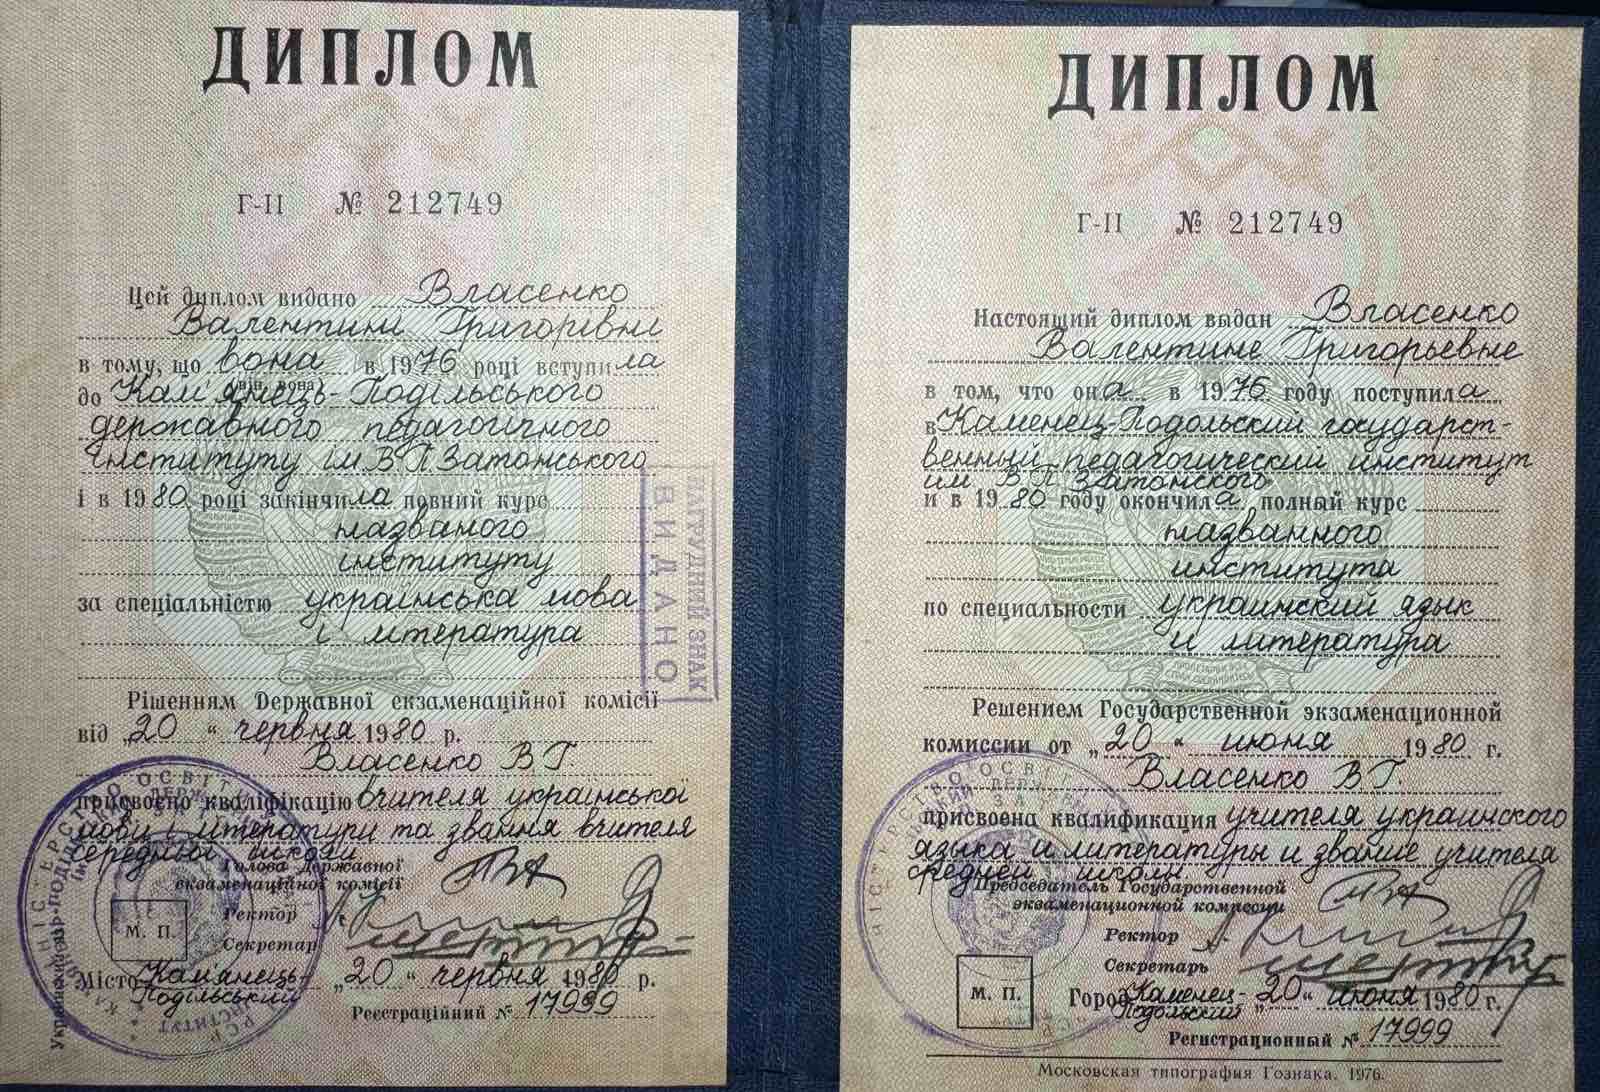 ДИПЛОМ
Г-II № 212749
Цей диплом видано Власенко
Валентині Григорівні
в тому, що вона в 1976 році вступила
(він, вона)
до Кам'янець-Подільського
державного педагогічного
інституту ім. В П Затонського
і в 1980 році закінчила повний курс
названого
інституту
за спеціальністю українська мова
і література
Рішенням Державної екзаменаційної комісії
від „20“ червня 1980 р.
Власенко В Г
присвоєно кваліфікацію вчителя української
мови і літератури та звання вчителя
середньої школи
Голова Державної
екзаменаційної комісії
Ректор
Секретар
М. П.
Місто Кам'янець-Подільський „20“ червня 1980 р.
Реєстраційний № 17999
НАГРУДНИЙ ЗНАК
ВИДАНО
ДИПЛОМ
Г-II № 212749
Настоящий диплом выдан Власенко
Валентине Григорьевне
в том, что она в 1976 году поступила
в Каменец-Подольский государст-
венный педагогический институт
им. В П Затонского
и в 1980 году окончила полный курс
названного
института
по специальности украинский язык
и литература
Решением Государственной экзаменационной
комиссии от „20“ июня 1980 г.
Власенко В Г.
присвоена квалификация учителя украинского
языка и литературы и звание учителя
средней школы
Председатель Государственной
экзаменационной комиссии
Ректор
Секретарь
М. П.
Город Каменец-Подольский „20“ июня 1980 г.
Регистрационный № 17999
Московская типография Гознака. 1976.